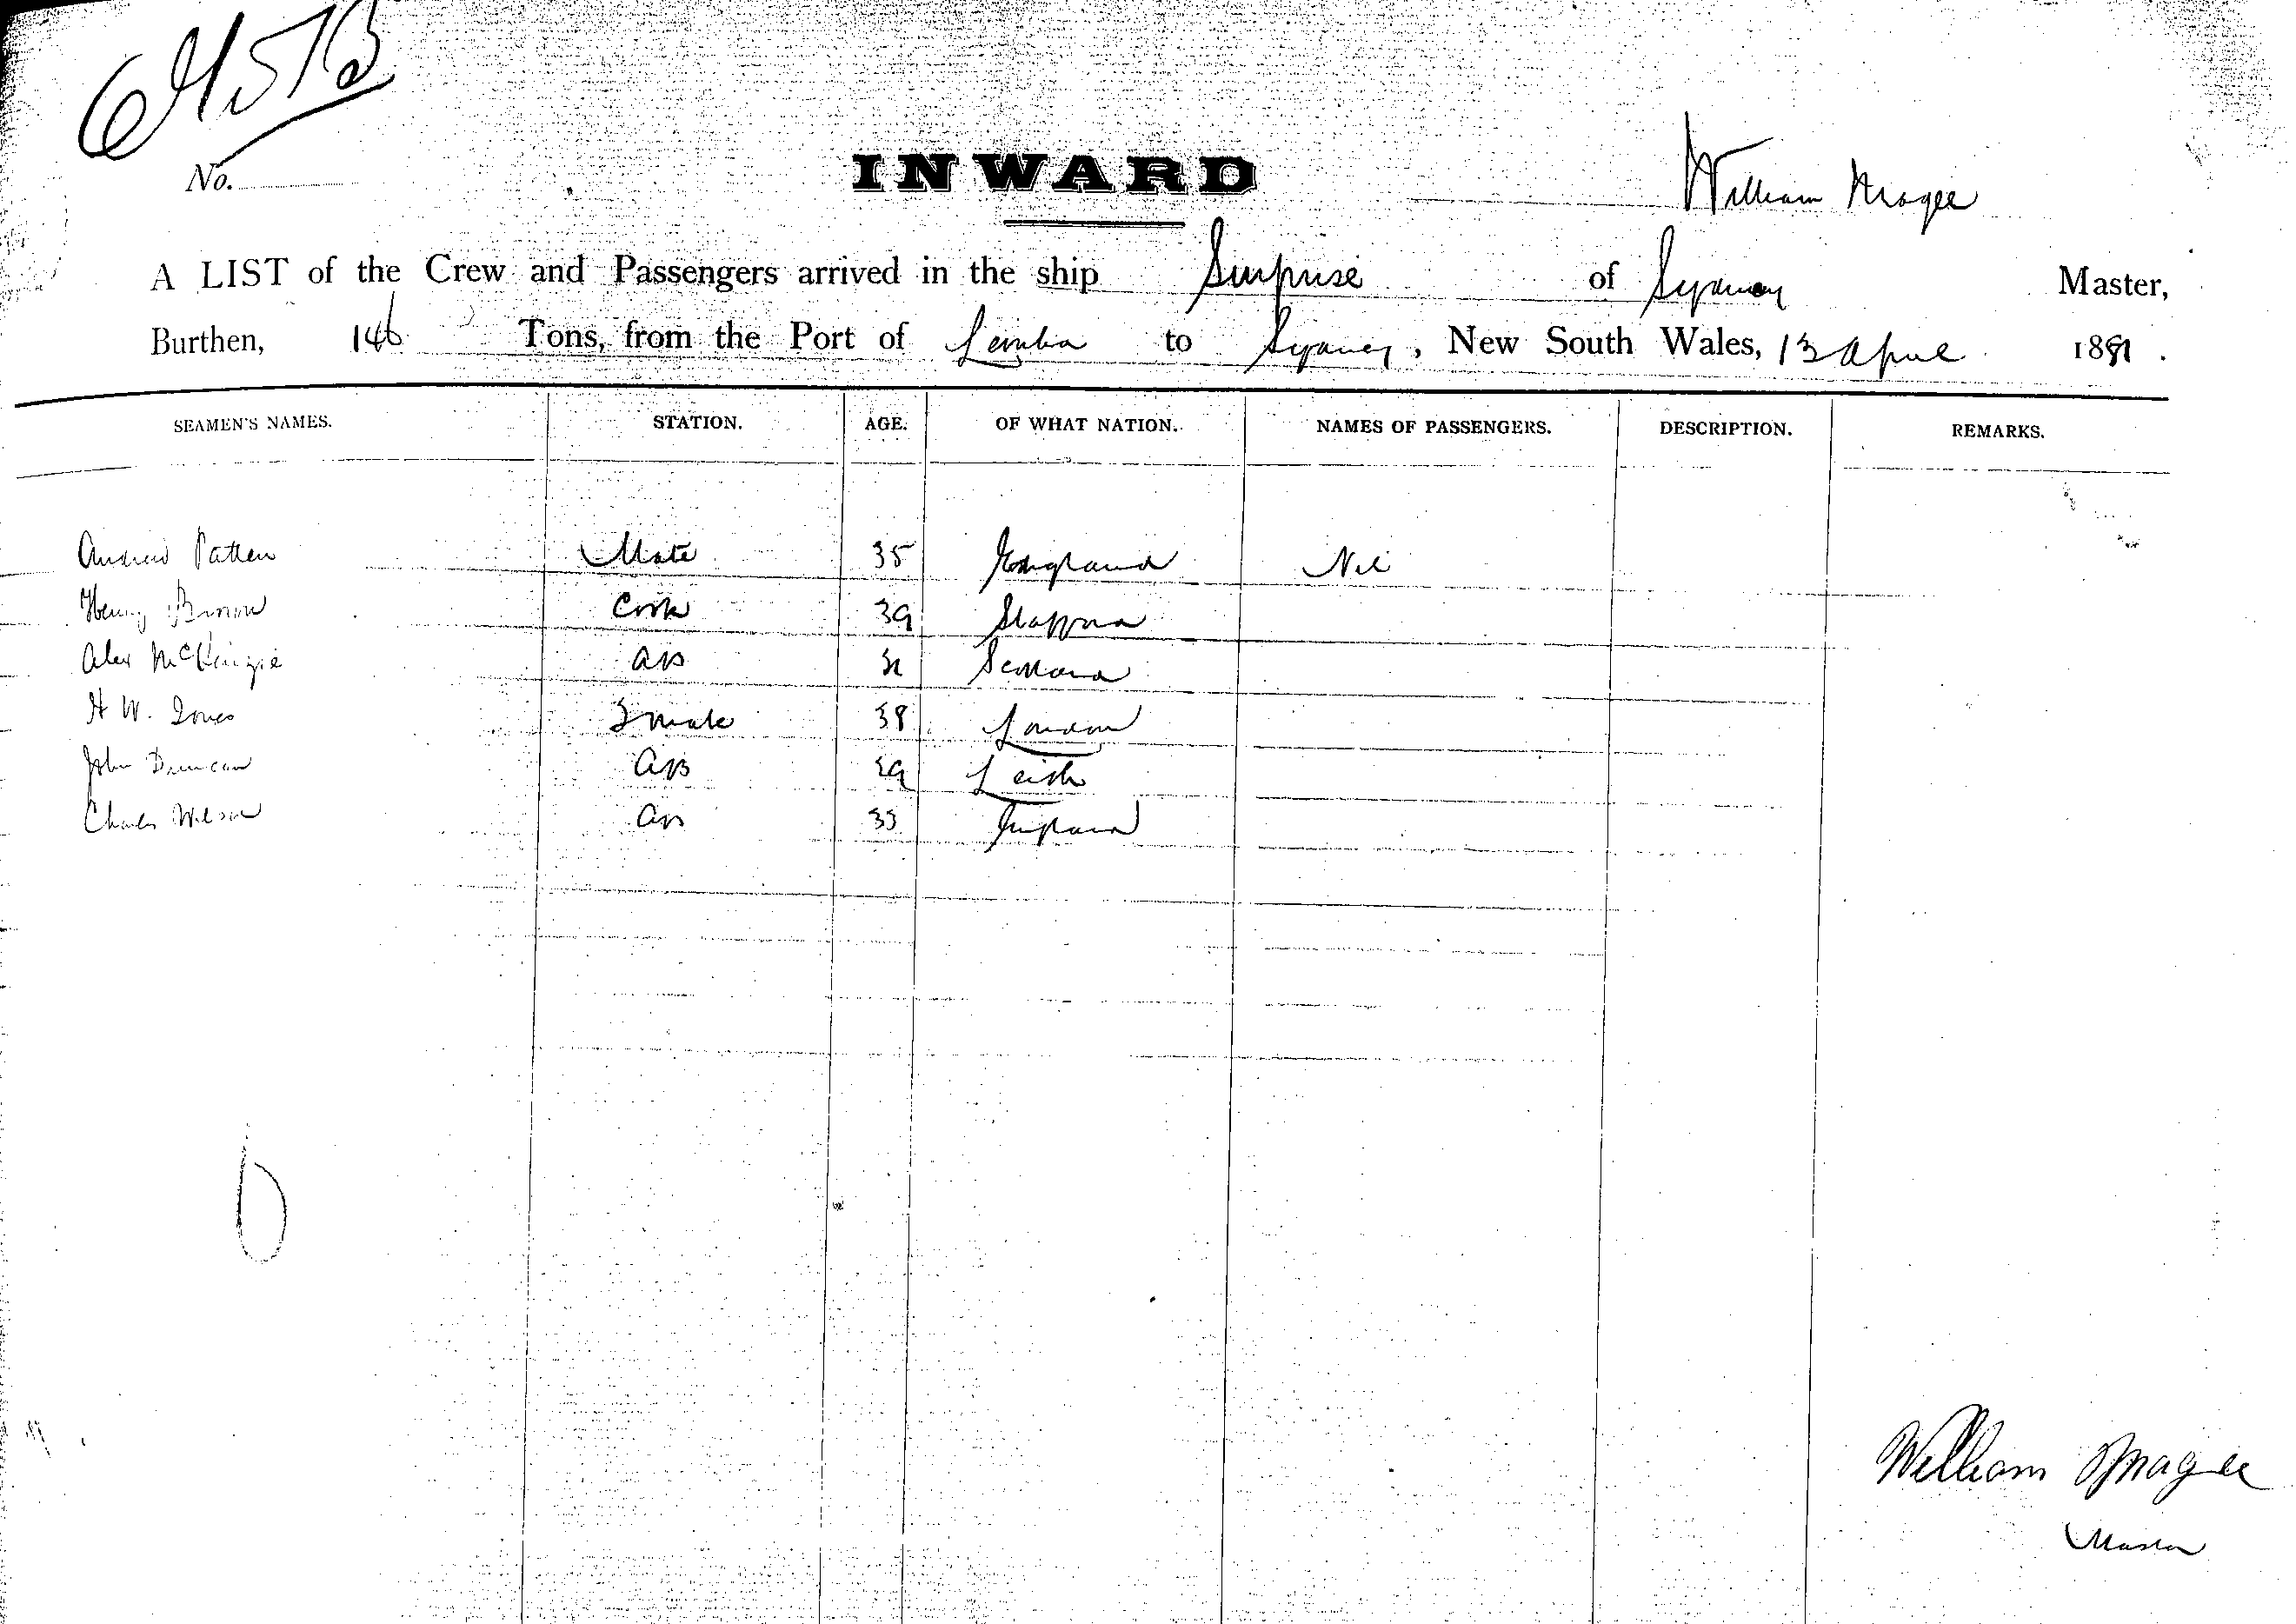 No.
INWARD
William Magee
A LIST of the Crew and Passengers arrived in the ship Surprise of Sydney Master,
Burthen, 146 Tons, from the Port of to Sydney, New South Wales, 13 April 1891.
SEAMEN'S NAMES. STATION. AGE. OF WHAT NATION. NAMES OF PASSENGERS. DESCRIPTION. REMARKS.
Andrew Patten Mate 35 England Nil
Henry Brown Cook 39
Alex McKenzie AB Scotland
H W. Jones 2 mate 38 London
John Duncan AB 29 Leith
Charles Wilson AB 33 England
William Magee
Master